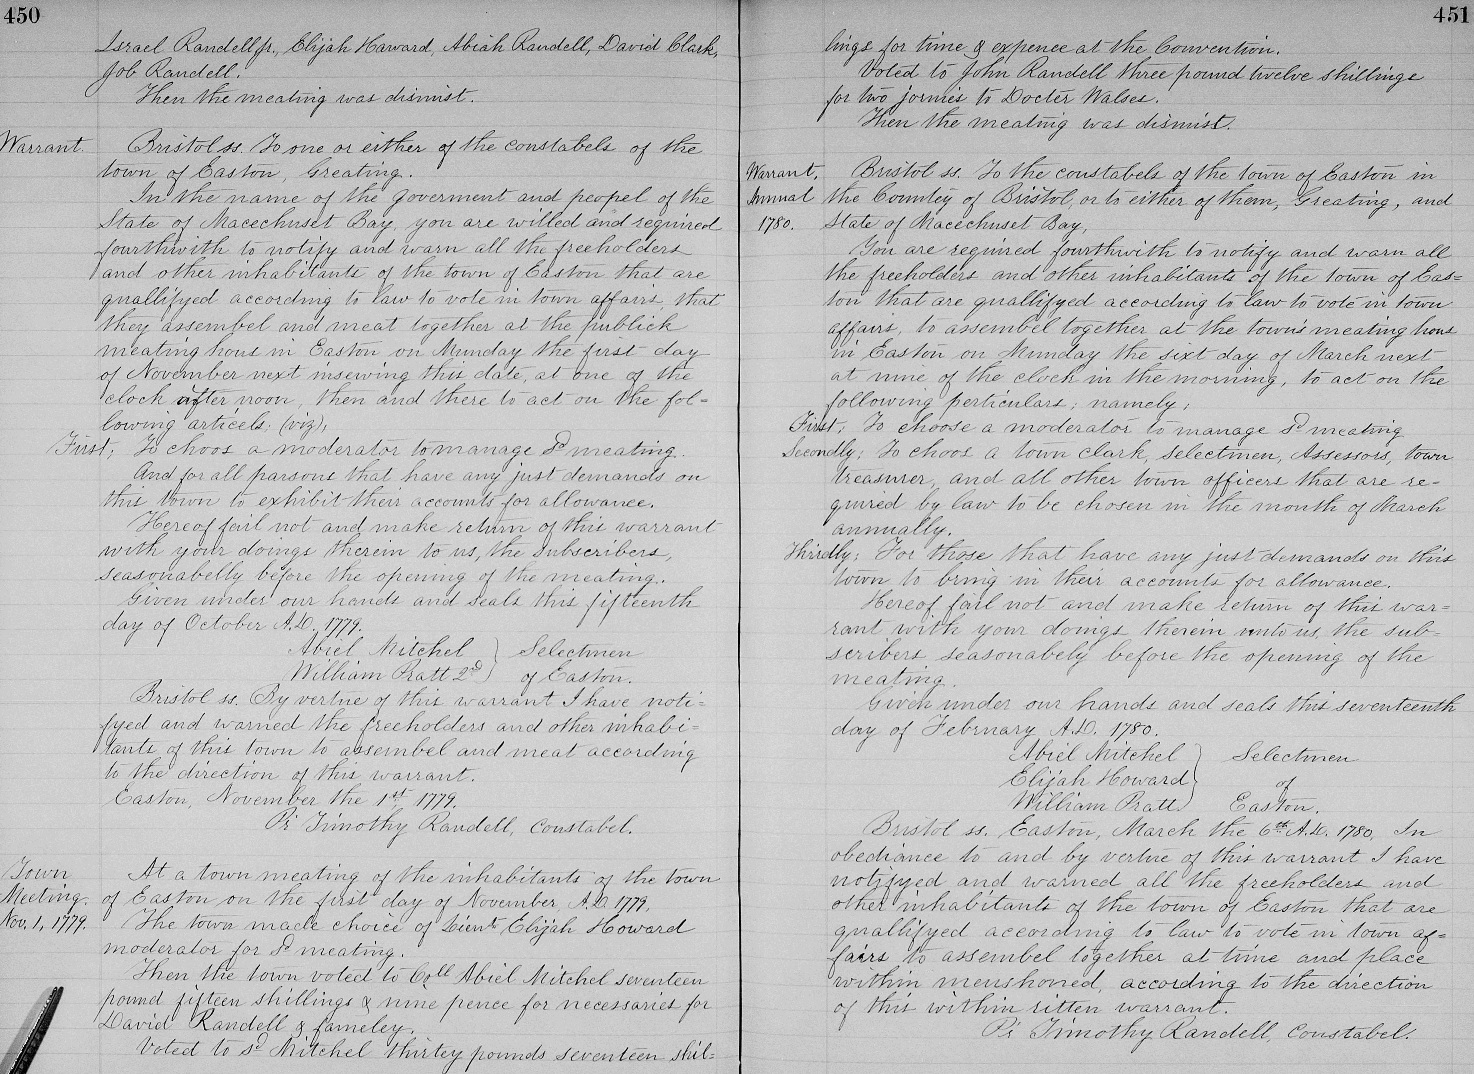 450
Israel Randell jr., Elijah Haward, Abiah Randell, David Clark,
Job Randell.
Then the meating was dismist.
Warrant.
Bristol ss. To one or either of the constabels of the
town of Easton, Greating.
In the name of the Goverment and peopel of the
State of Macechuset Bay, you are willed and required
fourthwith to notify and warn all the freeholders
and other inhabitants of the town of Easton that are
quallifyed according to law to vote in town affairs, that
they assembel and meat together at the publick
meating hous in Easton on Munday the first day
of November next insewing this date, at one of the
clock after noon, then and there to act on the fol=
lowing articels; (viz),
First; To choos a moderator to manage sd meating.
And for all parsons that have any just demands on
this town to exhibit their accounts for allowance.
Hereof fail not and make return of this warrant
with your doings therein to us, the subscribers,
seasonabelly before the opening of the meating.
Given under our hands and seals this fifteenth
day of October A.D. 1779.
Abiel Mitchel } Selectmen
William Pratt 2d } of Easton.
Bristol ss. By vertue of this warrant I have noti=
fyed and warned the freeholders and other inhabi=
tants of this town to assembel and meat according
to the direction of this warrant.
Easton, November the 1st, 1779.
Pr Timothy Randell, constabel.
Town
Meeting.
Nov. 1, 1779.
At a town meating of the inhabitants of the town
of Easton on the first day of November A.D. 1779,
The town made choice of Lieut Elijah Howard
moderator for sd meating.
Then the town voted to Coll Abiel Mitchel seventeen
pound fifteen shillings & nine pence for necessaries for
David Randell & fameley.
Voted to sd Mitchel thirtey pounds seventeen shil=
451
lings for time & expence at the Convention.
Voted to John Randell three pound twelve shillings
for two jornies to Docter Walses.
Then the meating was dismist.
Warrant.
Annual
1780.
Bristol ss. To the constabels of the town of Easton in
the Countey of Bristol, or to either of them, Greating, and
State of Macechuset Bay,
You are required fourthwith to notify and warn all
the freeholders and other inhabitants of the town of Eas=
ton that are quallifyed according to law to vote in town
affairs, to assembel together at the town's meating hous
in Easton on Munday the sixt day of March next
at nine of the clock in the morning, to act on the
following perticulars; namely;
First; To choose a moderator to manage sd meating
Secondly; To choos a town clark, selectmen, Assessors, town
treasurer, and all other town officers that are re=
quired by law to be chosen in the month of March
annually.
Thirdly; For those that have any just demands on this
town to bring in their accounts for allowance.
Hereof fail not and make return of this war=
rant with your doings therein unto us, the sub=
scribers, seasonabely before the opening of the
meating.
Given under our hands and seals this seventeenth
day of February A.D. 1780.
Abiel Mitchel } Selectmen
Elijah Howard } of
William Pratt } Easton.
Bristol ss. Easton, March the 6th A.D. 1780, In
obediance to and by vertue of this warrant I have
notifyed and warned all the freeholders and
other inhabitants of the town of Easton that are
quallifyed according to law to vote in town af=
fairs to assembel together at time and place
within menshoned, according to the direction
of this within ritten warrant.
Pr Timothy Randell, constabel.